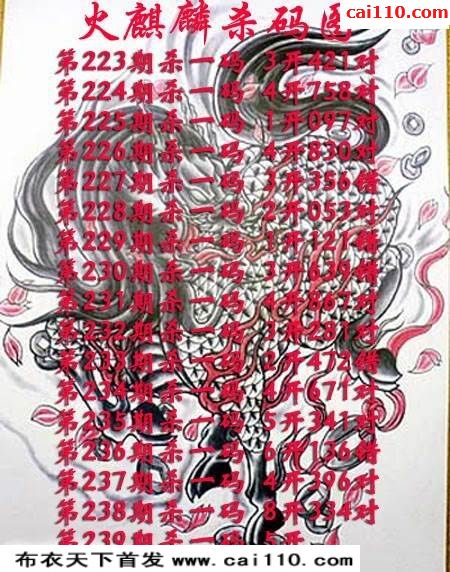 cai110.com
火麒麟杀码图
第223期杀一码 3开421对
第224期杀一码 4开758对
第225期杀一码 1开097对
第226期杀一码 4开830对
第227期杀一码 3开356错
第228期杀一码 2开053对
第229期杀一码 1开121错
第230期杀一码 3开639错
第231期杀一码 4开867对
第232期杀一码 3开281对
第233期杀一码 2开472错
第234期杀一码 4开671对
第235期杀一码 5开341对
第236期杀一码 6开136错
第237期杀一码 4开396对
第238期杀一码 8开334对
第239期杀一码 5开
布衣天下首发 www.cai110.com